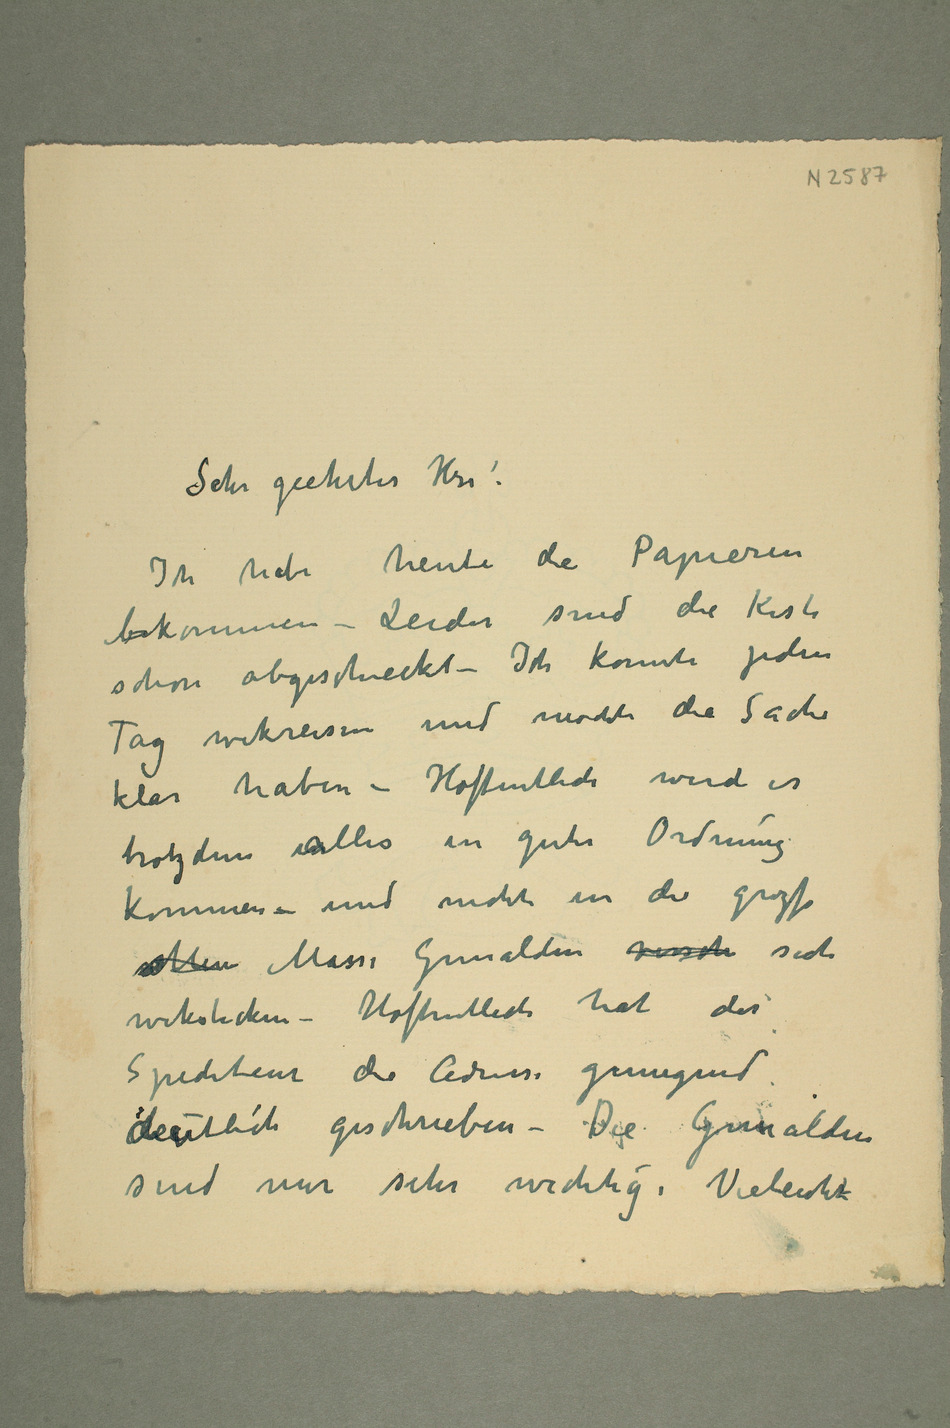 N 2587
Sehr geehrter Herr!
Ich habe heute die Papieren
bekommen – Leider sind die Kiste
schon abgeschieckt – Ich konnte jeden
Tag wekreisen und möchte die Sache
klar haben – Hoffentlich wird es
trotzdem alles in guter Ordnung
kommen – und nicht in die grosse
Masse Gemälden sich
wekstecken – Hoffentlich hat der
Spediteur die Adresse genugend
deutlich geschrieben – Die Gemälden
sind mir sehr wichtig. Vieleicht